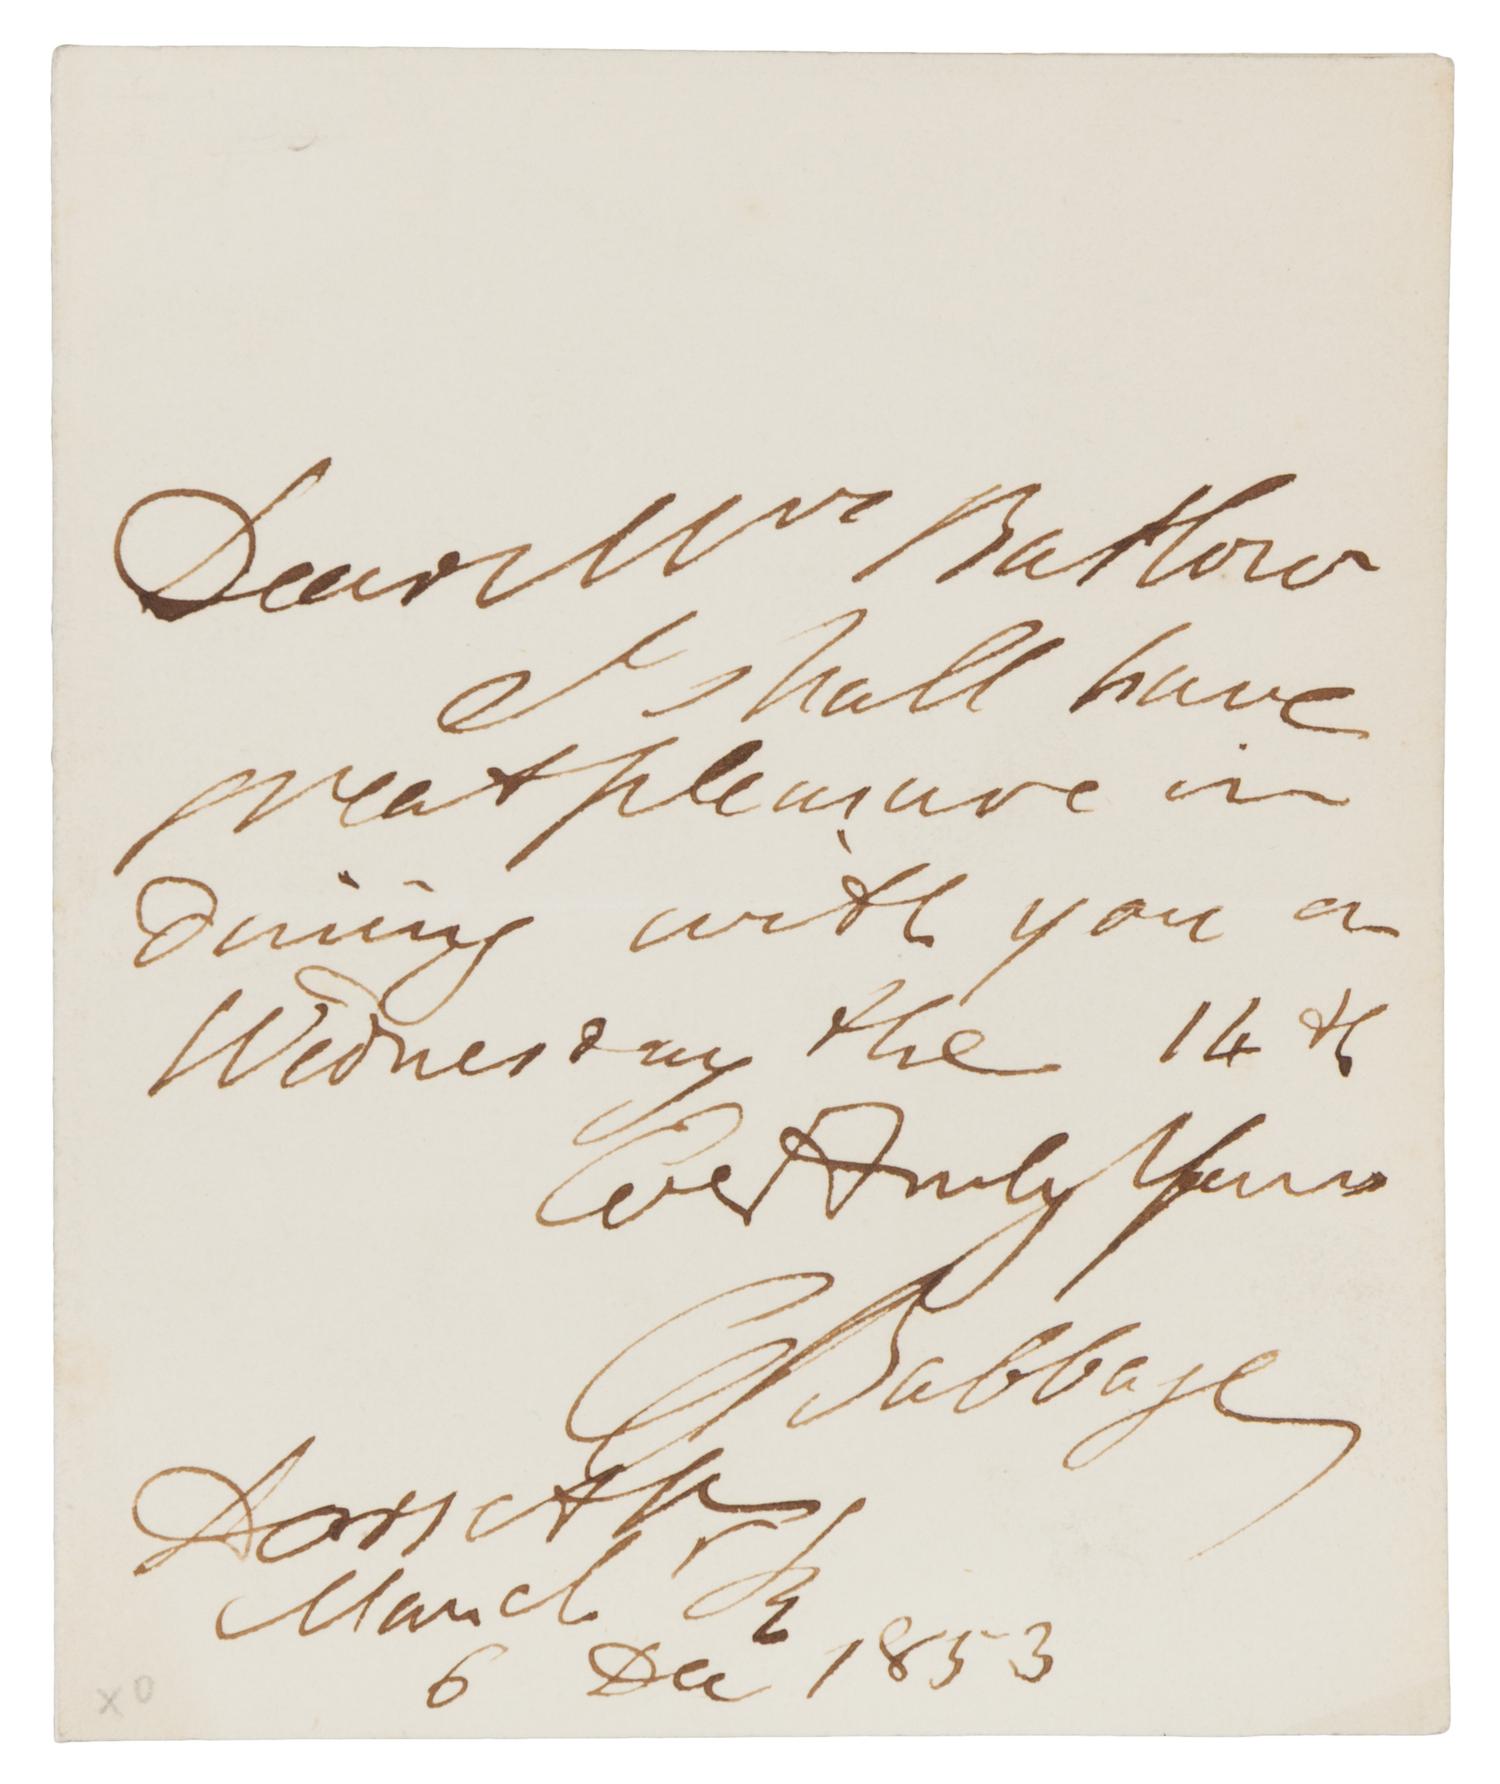 Dear Mrs Barlow
I shall have
great pleasure in
dining with you on
Wednesday the 14th
Ever truly Yours
C Babbage
Dorset St
Manch Sq
6 Dec 1853
x0